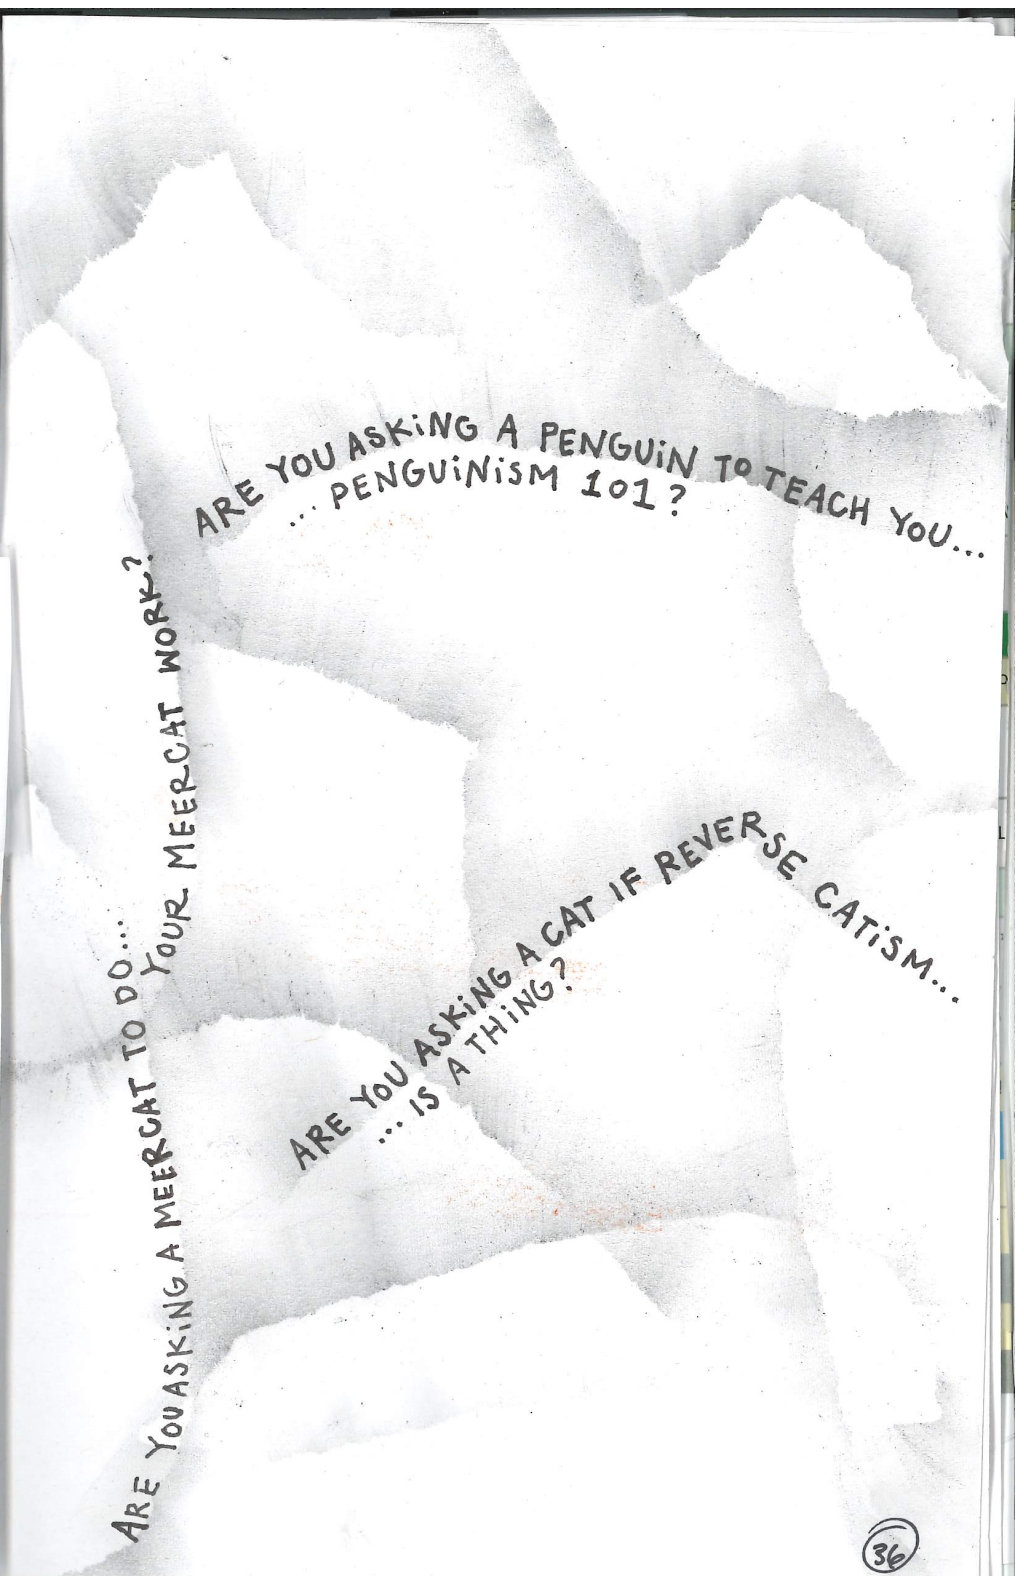 ARE YOU ASKING A PENGUIN TO TEACH YOU...
... PENGUINISM 101?
ARE YOU ASKING A MEERCAT TO DO...
YOUR MEERCAT WORK?
ARE YOU ASKING A CAT IF REVERSE CATISM...
... IS A THING?
36